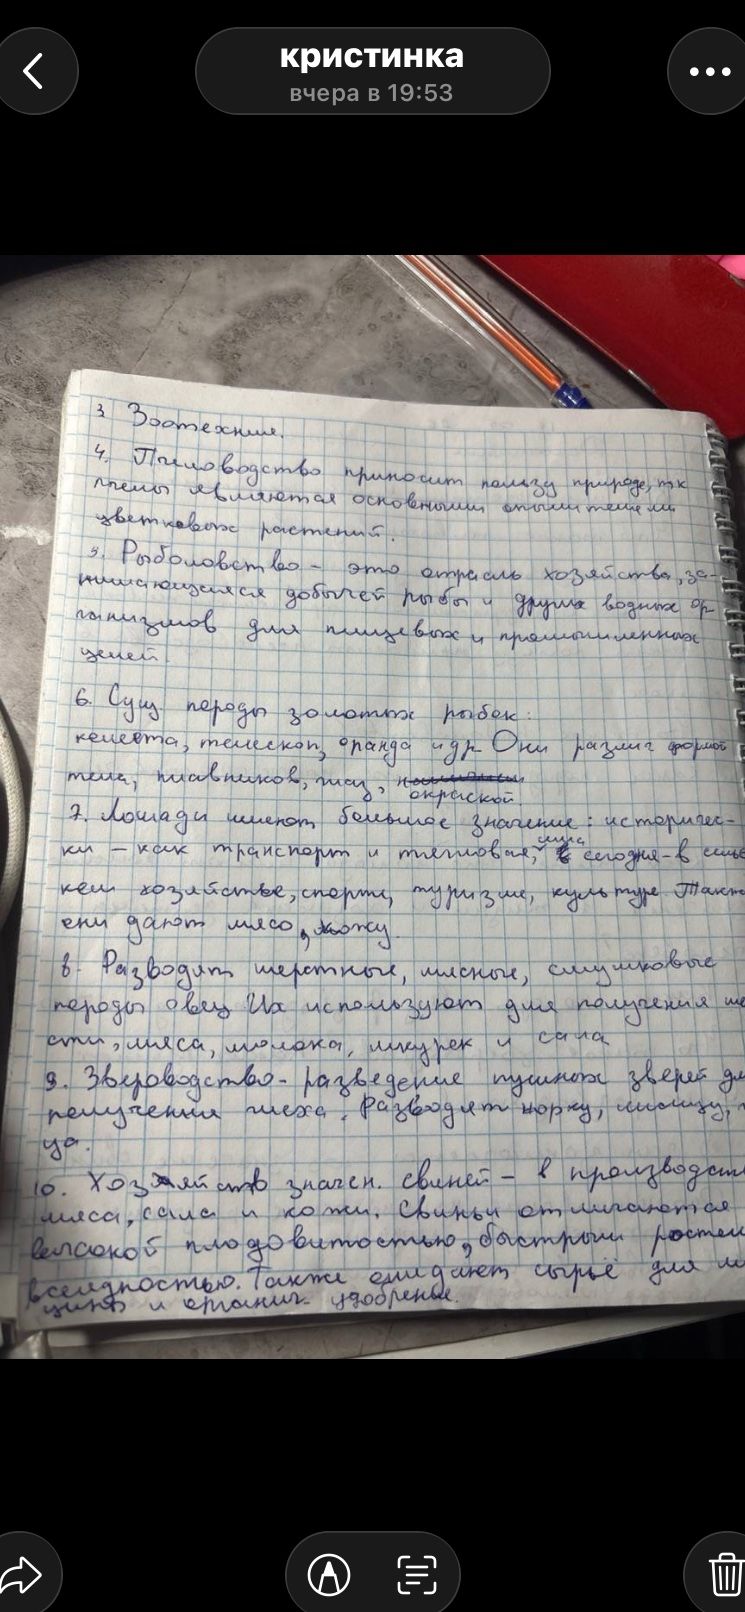 кристинка
вчера в 19:53
3 Зоотехния.
4. Пчеловодство приносит пользу природе, тк
пчелы являются основными опылителями
цветковых растений.
5. Рыболовство – это отрасль хозяйства, за-
нимающаяся добычей рыбы и других водных ор
ганизмов для пищевых и промышленных
целей.
6. Сущ. породы золотых рыбок:
комета, телескоп, оранда и др. Они различ формой
тела, плавников, глаз,
окраской.
7. Лошади имеют большое значение: историчес-
ки – как транспорт и тягловая сила, сегодня – в сель
ком хозяйстве, спорте, туризме, культуре. Такж
они дают мясо, кожу.
8. Разводят шерстные, мясные, смушковые
породы овец Их используют для получения ше
сти, мяса, молока, шкурек и сала
9. Звероводство – разведение пушных зверей дл
получения меха. Разводят норку, лисицу,
ца.
10. Хозяйств значен. свиней – в производст
мяса, сала и кожи. Свиньи отличаются
высокой плодовитостью, быстрым ростом
всеядностью. Также они дают сырьё для м
цины и органич. удобренье.